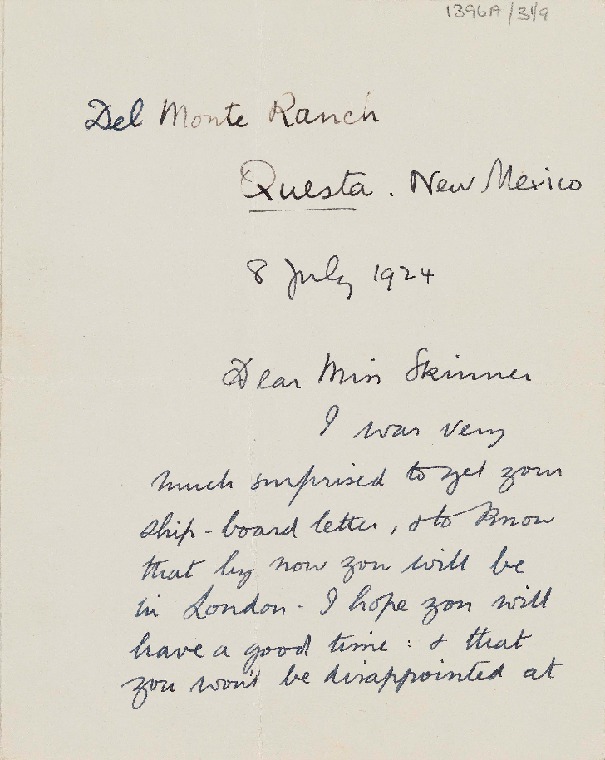 1396A/3/9
Del Monte Ranch
Questa. New Mexico
8 July 1924
Dear Miss Skinner
I was very
much surprised to get your
ship-board letter, & to know
that by now you will be
in London. I hope you will
have a good time: & that
you won't be disappointed at